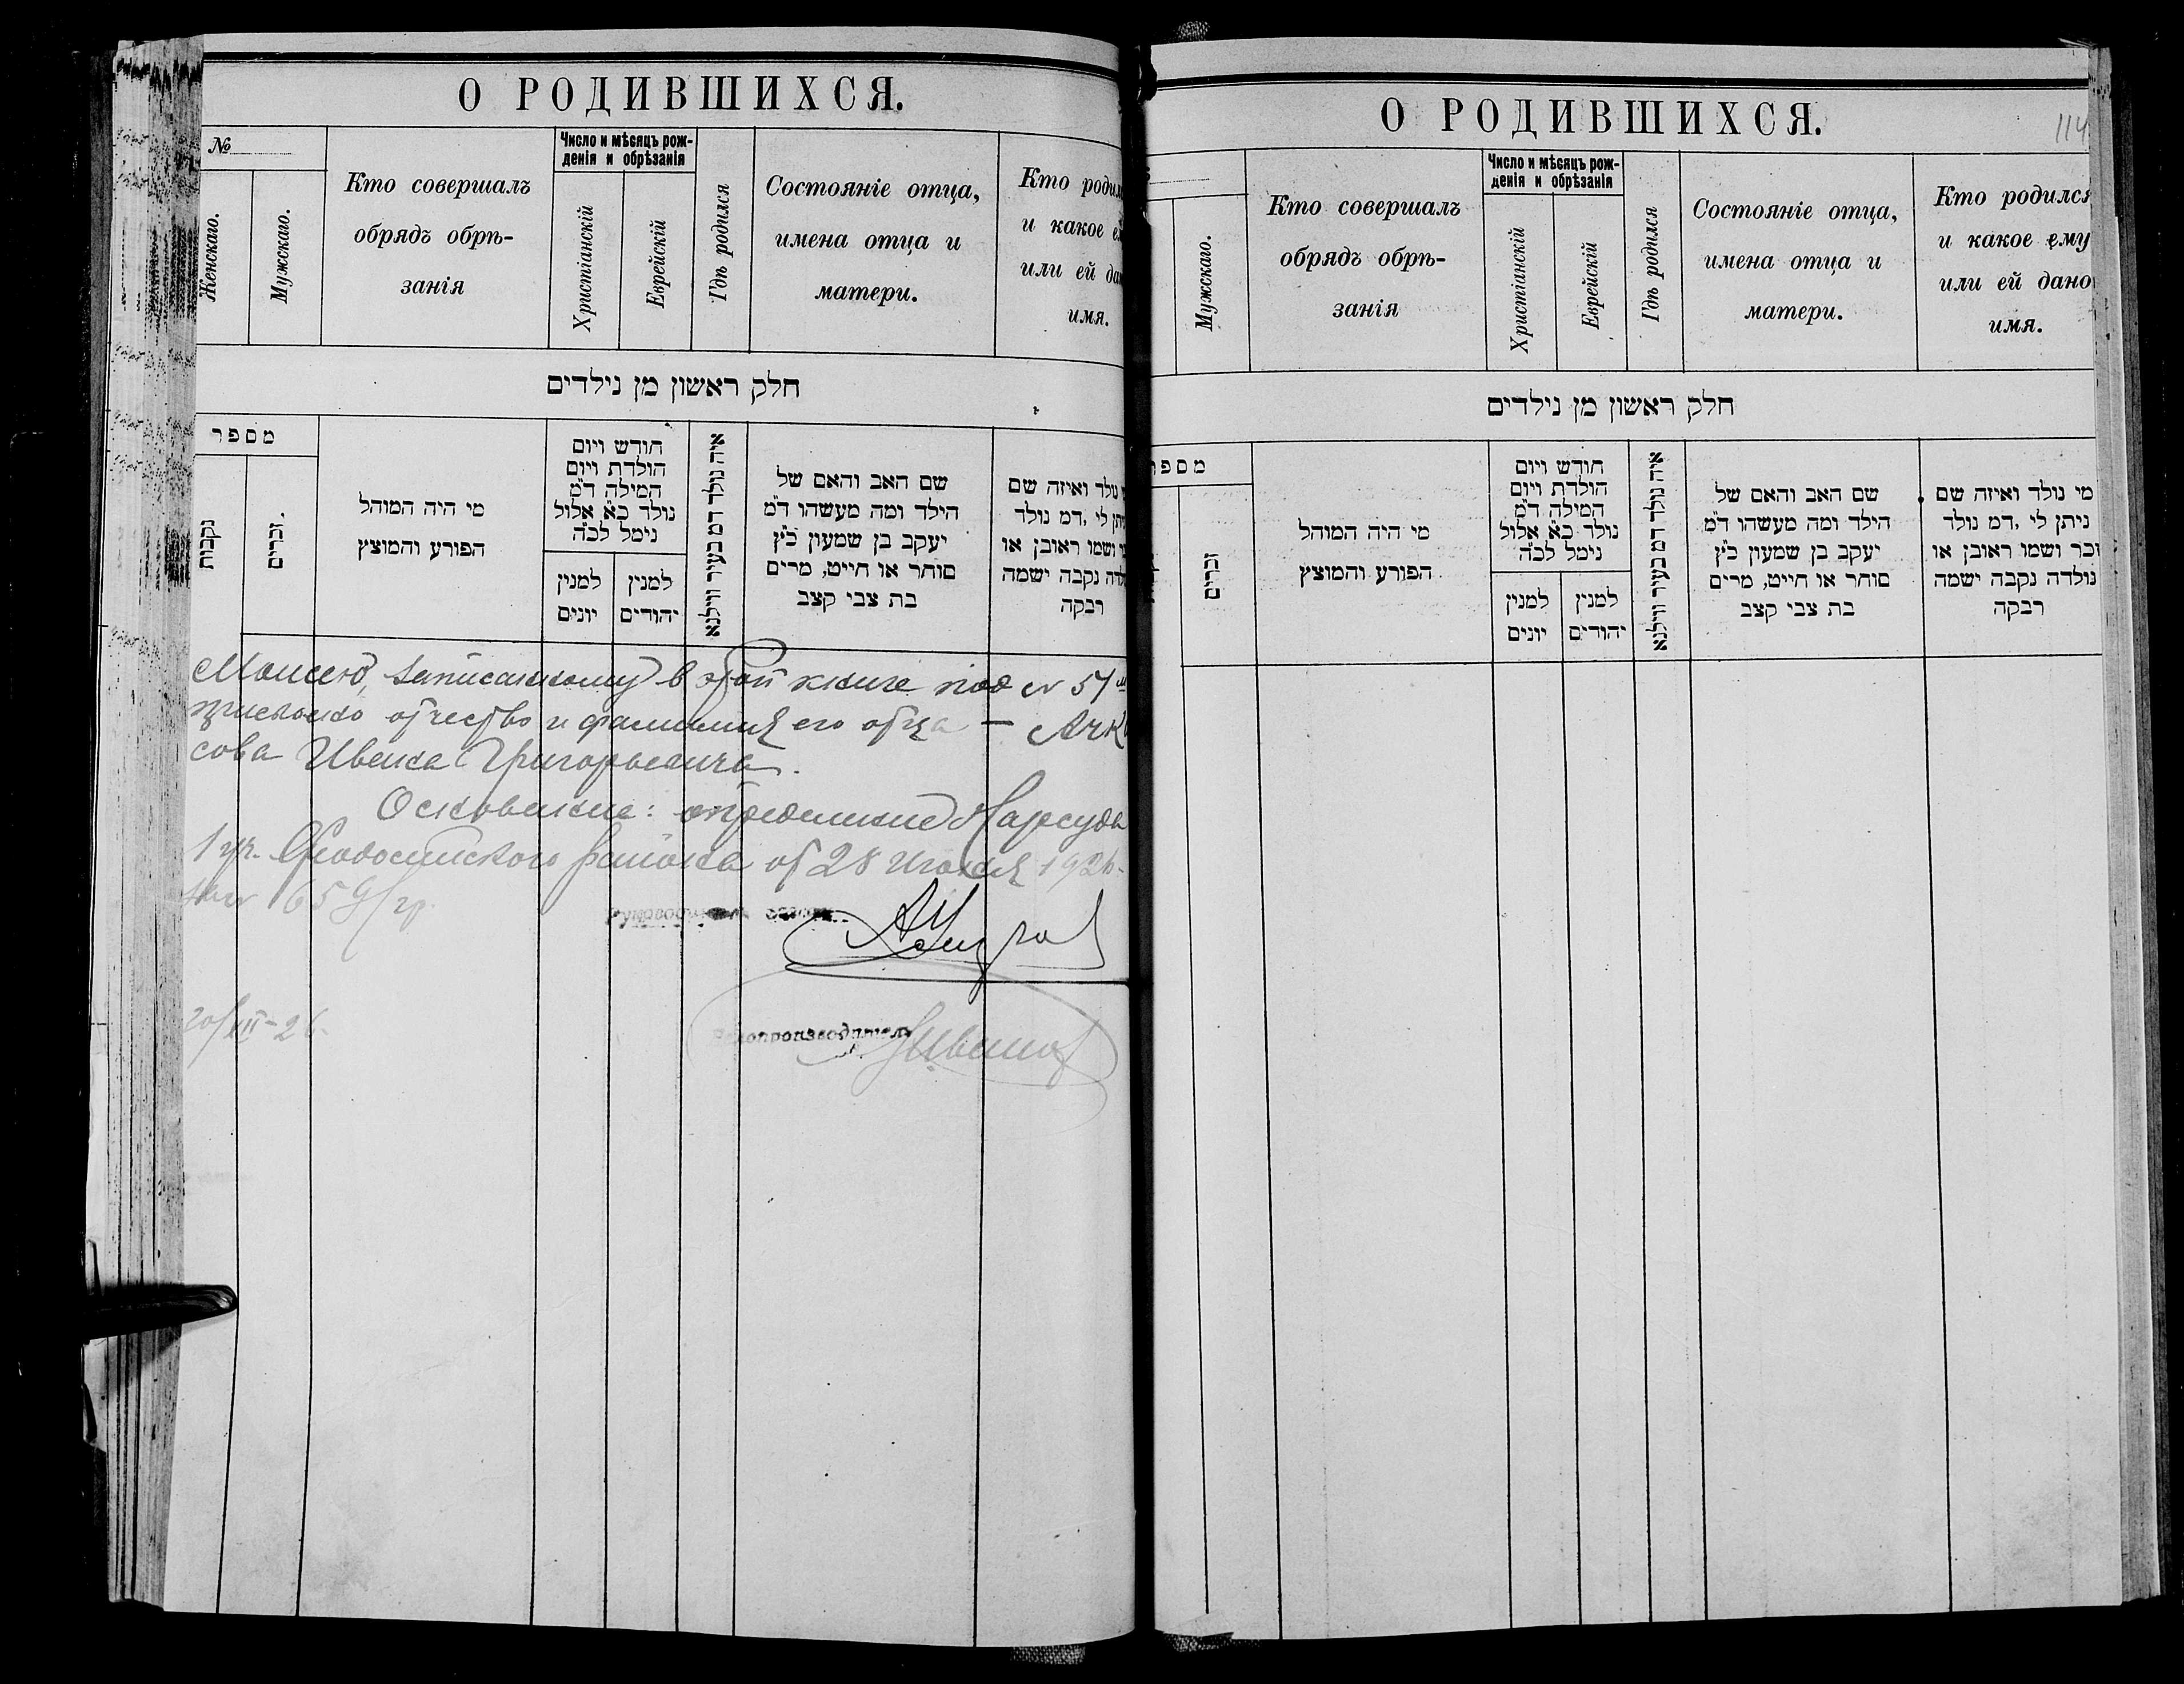 О РОДИВШИХСЯ.
№
Женскаго.
Мужскаго.
Кто совершалъ
обрядъ обрѣ-
занія
Число и мѣсяцъ рож-
денія и обрѣзанія
Христіанскій
Еврейскій
Гдѣ родился
Состояніе отца,
имена отца и
матери.
Кто
и какое
или ей
имя.
חלק ראשון מן נילדים
מספר
נקבות
זכרים.
מי היה המוהל
הפורע והמוצץ
חודש ויום
הולדת ויום
המילה ד"מ
נולד כ"א אלול
נימל לכ"ה
למנין
יונים
למנין
יהודים
איה נולד דמ בעיר ווילנא
שם האב והאם של
הילד ומה מעשהו ד"מ
יעקב בן שמעון כ"ץ
סוחר או חייט, מרים
בת צבי קצב
נולד ואיזה שם
לי, דמ נולד
ושמו ראובן או
נקבה ישמה
רבקה
Моисею, записанному в этой книге под № 51
присвоено отчество и фамилия его отца —
сова Ивана Григорьевича.
Основание: определение Нарсуда
1 уч. Феодосийского района от 28 июня 1926
659/гр.
20/XII-26
Делопроизводитель
О РОДИВШИХСЯ.
114
Мужскаго.
Кто совершалъ
обрядъ обрѣ-
занія
Число и мѣсяцъ рож-
денія и обрѣзанія
Христіанскій
Еврейскій
Гдѣ родился
Состояніе отца,
имена отца и
матери.
Кто родился
и какое ему
или ей дано
имя.
חלק ראשון מן נילדים
זכרים
מי היה המוהל
הפורע והמוצץ
חודש ויום
הולדת ויום
המילה ד"מ
נולד כ"א אלול
נימל לכ"ה
למנין
יונים
למנין
יהודים
איה נולד דמ בעיר ווילנא
שם האב והאם של
הילד ומה מעשהו ד"מ
יעקב בן שמעון כ"ץ
סוחר או חייט, מרים
בת צבי קצב
מי נולד ואיזה שם
ניתן לי, דמ נולד
זכר ושמו ראובן או
נולדה נקבה ישמה
רבקה